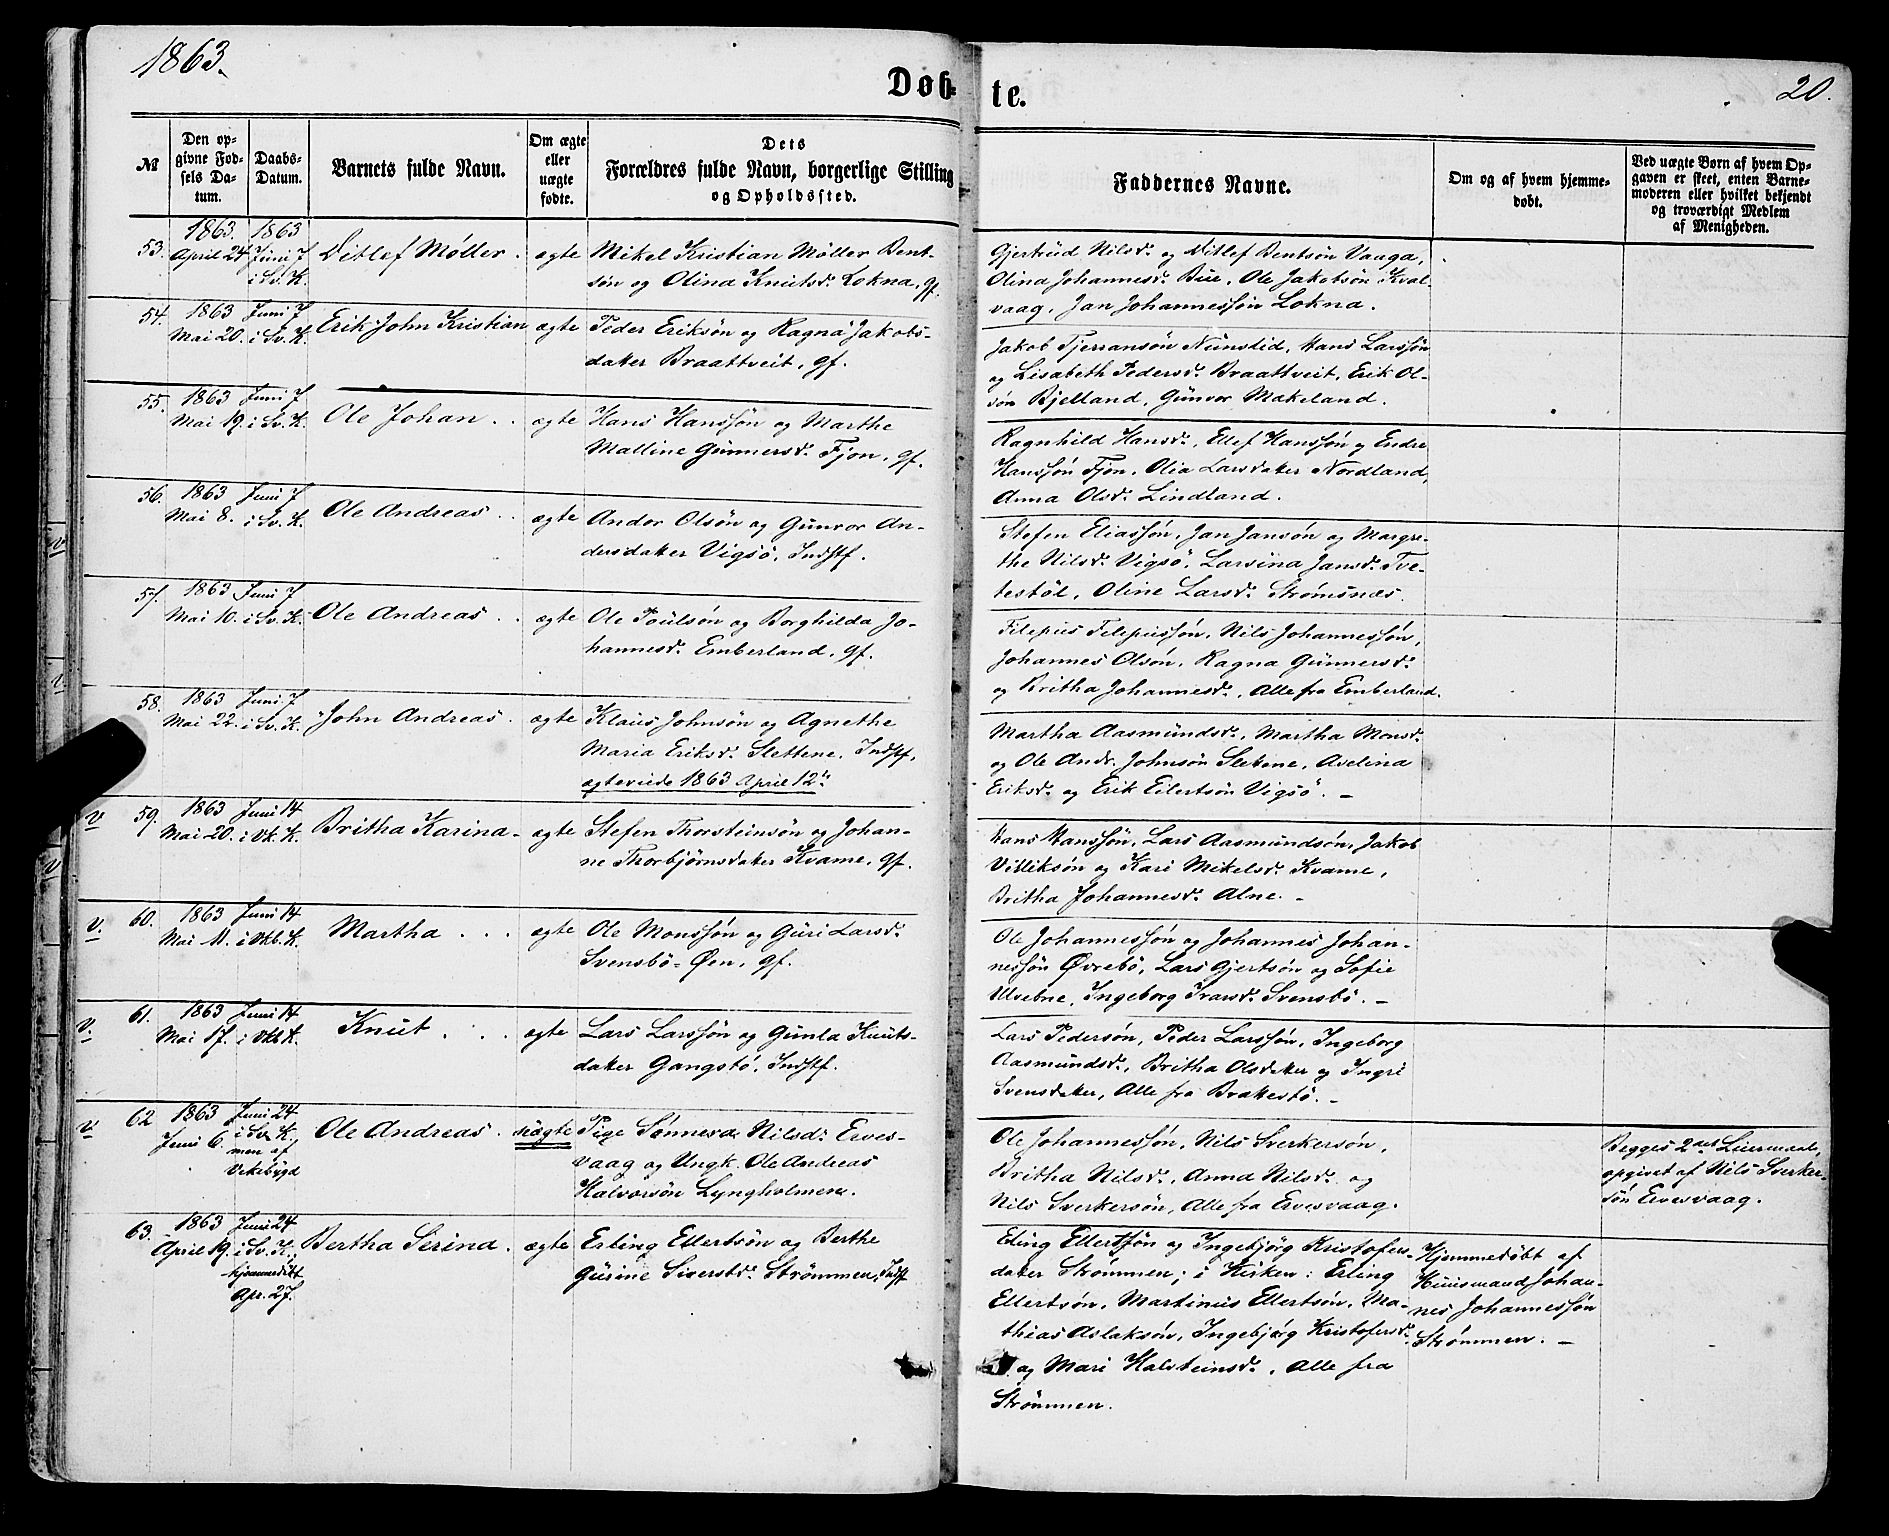 1863.
Døbte.
20.
№
Den opgivne Fødsels Datum.
Daabs-Datum.
Barnets fulde Navn.
Om ægte eller uægte fødte.
Dets Forældres fulde Navn, borgerlige Stilling og Opholdssted.
Faddernes Navne.
Om og af hvem hjemmedøbt.
Ved uægte Børn af hvem Opgaven er skeet, enten Barnemoderen eller hvilket bekjendt og troværdigt Medlem af Menigheden.
53. 1863. April 24 1863 Juni 7 i Sv. K. Ditlef Möller. ægte
Mikel Kristian Möller Bent-
sön og Olina Knutsdr. Lokna, gf.
Gjertrud Nilsdr. og Ditlef Bentsön Vaaga,
Olina Johannesdr. Bue, Ole Jakobsön Kval-
vaag, Jan Johannessön Lokna.
54. 1863 Mai 20. Juni 7 i Sv. K. Erik John Kristian ægte
Peder Eriksön og Ragna Jakobs-
datter Braattveit, gf.
Jakob Tjerransön Nunstid, Hans Larssön
og Lisabeth Pedersdr. Braattveit, Erik Ol-
sön Bjelland, Gunvor Makeland.
55. 1863 Mai 19. Juni 7 i Sv. K. Ole Johan . . ægte
Hans Hanssön og Marthe
Malline Gunnersdr. Fjon, gf.
Ragnhild Hansdr., Ellef Hanssön og Endre
Hanssön Fjon, Olia Larsdatter Nordland,
Anna Olsdr. Lindland.
56. 1863 Mai 8. Juni 7 i Sv. K. Ole Andreas . . ægte
Andor Olsön og Gunvor An-
dersdatter Vigsö, Indstf.
Stefen Eliassön, Jan Jansön og Margre-
the Nilsdr. Vigsö, Larsina Jansdr. Tve-
testöl, Oline Larsdr. Strömsnæs.
57. 1863 Mai 10. Juni 7 i Sv. K. Ole Andreas . . ægte
Ole Poulsön og Borghilda Jo-
hannesdr. Emberland, gf.
Filepus Filepussön, Nils Johannessön,
Johannes Olsön, Ragna Gunnersdr.
og Britha Johannesdr., Alle fra Emberland.
58. 1863 Mai 22. Juni 7 i Sv. K. John Andreas . ægte
Klaus Johnsön og Agnethe
Maria Eriksdr. Slettene, Indstf,
ægteviede 1863 April 12te
Martha Aasmundsdr., Martha Monsdr.
og Ole Andr. Johnsön Sletene, Avelina
Eriksdr. og Erik Eilertsön Vigsö. –
v 59. 1863 Mai 20. Juni 14 i Vk. K. Britha Karina - ægte
Stefen Thorsteinsön og Johan-
ne Thorbjörnsdatter Kvame, gf.
Hans Hanssön, Lars Aasmundsön, Jakob
Villiksön og Kari Mikelsdr. Kvame,
Britha Johannesdr. Alne. -
v. 60. 1863 Mai 11. Juni 14 i Vkb. K. Martha . . . ægte
Ole Monssön og Guri Larsdr.
Svensbö-Øen, gf.
Ole Johannessön og Johannes Johan-
nessön Øvrebö, Lars Gjertsön og Sofie
Ulvebne, Ingeborg Ivarsdr. Svensbö. –
v. 61. 1863 Mai 17. Juni 14 i Vkb K. Knut . . . ægte
Lars Larssön og Gunla Knuts-
datter Gangstö, Indstf.
Lars Pedersön, Peder Larssön, Ingeborg
Aasmundsdr., Britha Olsdatter og Ingri
Svensdatter, Alle fra Brakestö. –
v 62 1863 Juni 6. Juni 24 i Sv. K., men af Vikebygd Ole Andreas . uægte
Pige Sönneva Nilsdr. Erves-
vaag og Ungk. Ole Andreas
Halvorsön Lyngholmen.
Ole Johannessön, Nils Sverkersön,
Britha Nilsdr., Anna Nilsdr. og
Nils Sverkersön, Alle fra Ervesvaag.
Begges 2det Leiermaal,
opgivet af Nils Sverker-
sön Ervesvaag.
63. 1863 April 19. Juni 24 i Sv. K., hjemmedöbt Apr. 27. Bertha Serina . ægte
Erling Ellertsön og Berthe
Gurine Siverstdr. Strömmen, Indstf
Eling Ellertsön og Ingebjörg Kristofers-
datter Strömmen; i Kirken: Erling
Ellertsön, Martinus Ellertsön, Ma-
thias Aslaksön, Ingebjörg Kristofersdr.
og Mari Halsteinsdr., Alle fra
Strömmen.
Hjemmedöbt af
Huusmand Johan-
nes Johannessön
Strömmen. –